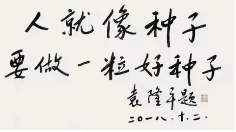 人就像种子
要做一粒好种子
袁隆平题
二〇一八.十二.